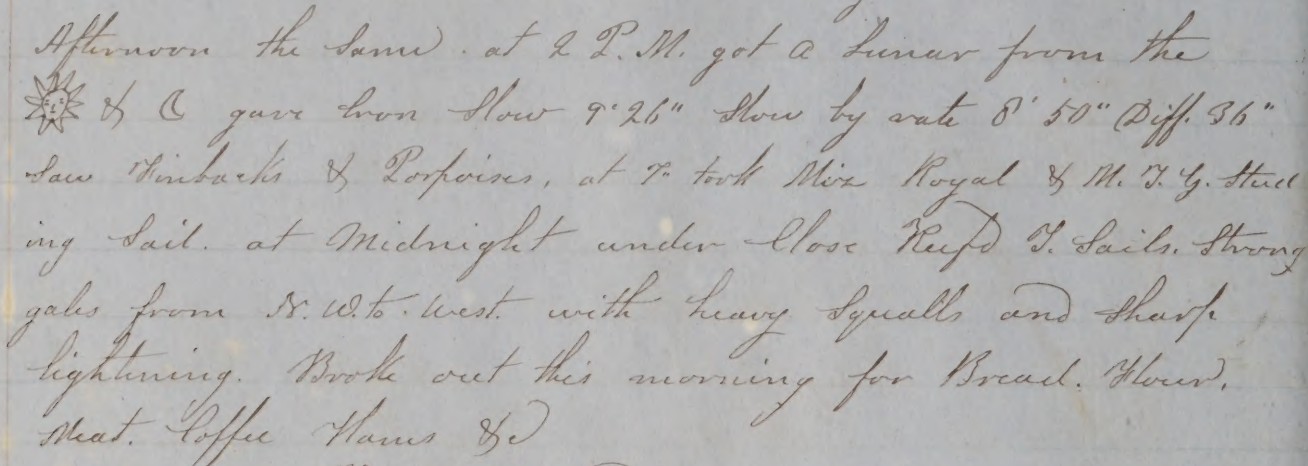 Afternoon the Same. at 2 P.M. got a Lunar from the
☀ & ☾ gave Cron Slow 9' 26" Slow by rate 8' 50" Diff. 36"
Saw Finbacks & Porpoises, at 7 took Miz Royal & M. T. G. Stud
ing Sail. at Midnight under Close Reefd T. Sails. Strong
gales from N. W. to. West. with heavy Squalls and Sharp
lightning. Broke out this morning for Bread. Flour.
Meat. Coffee Hams &c